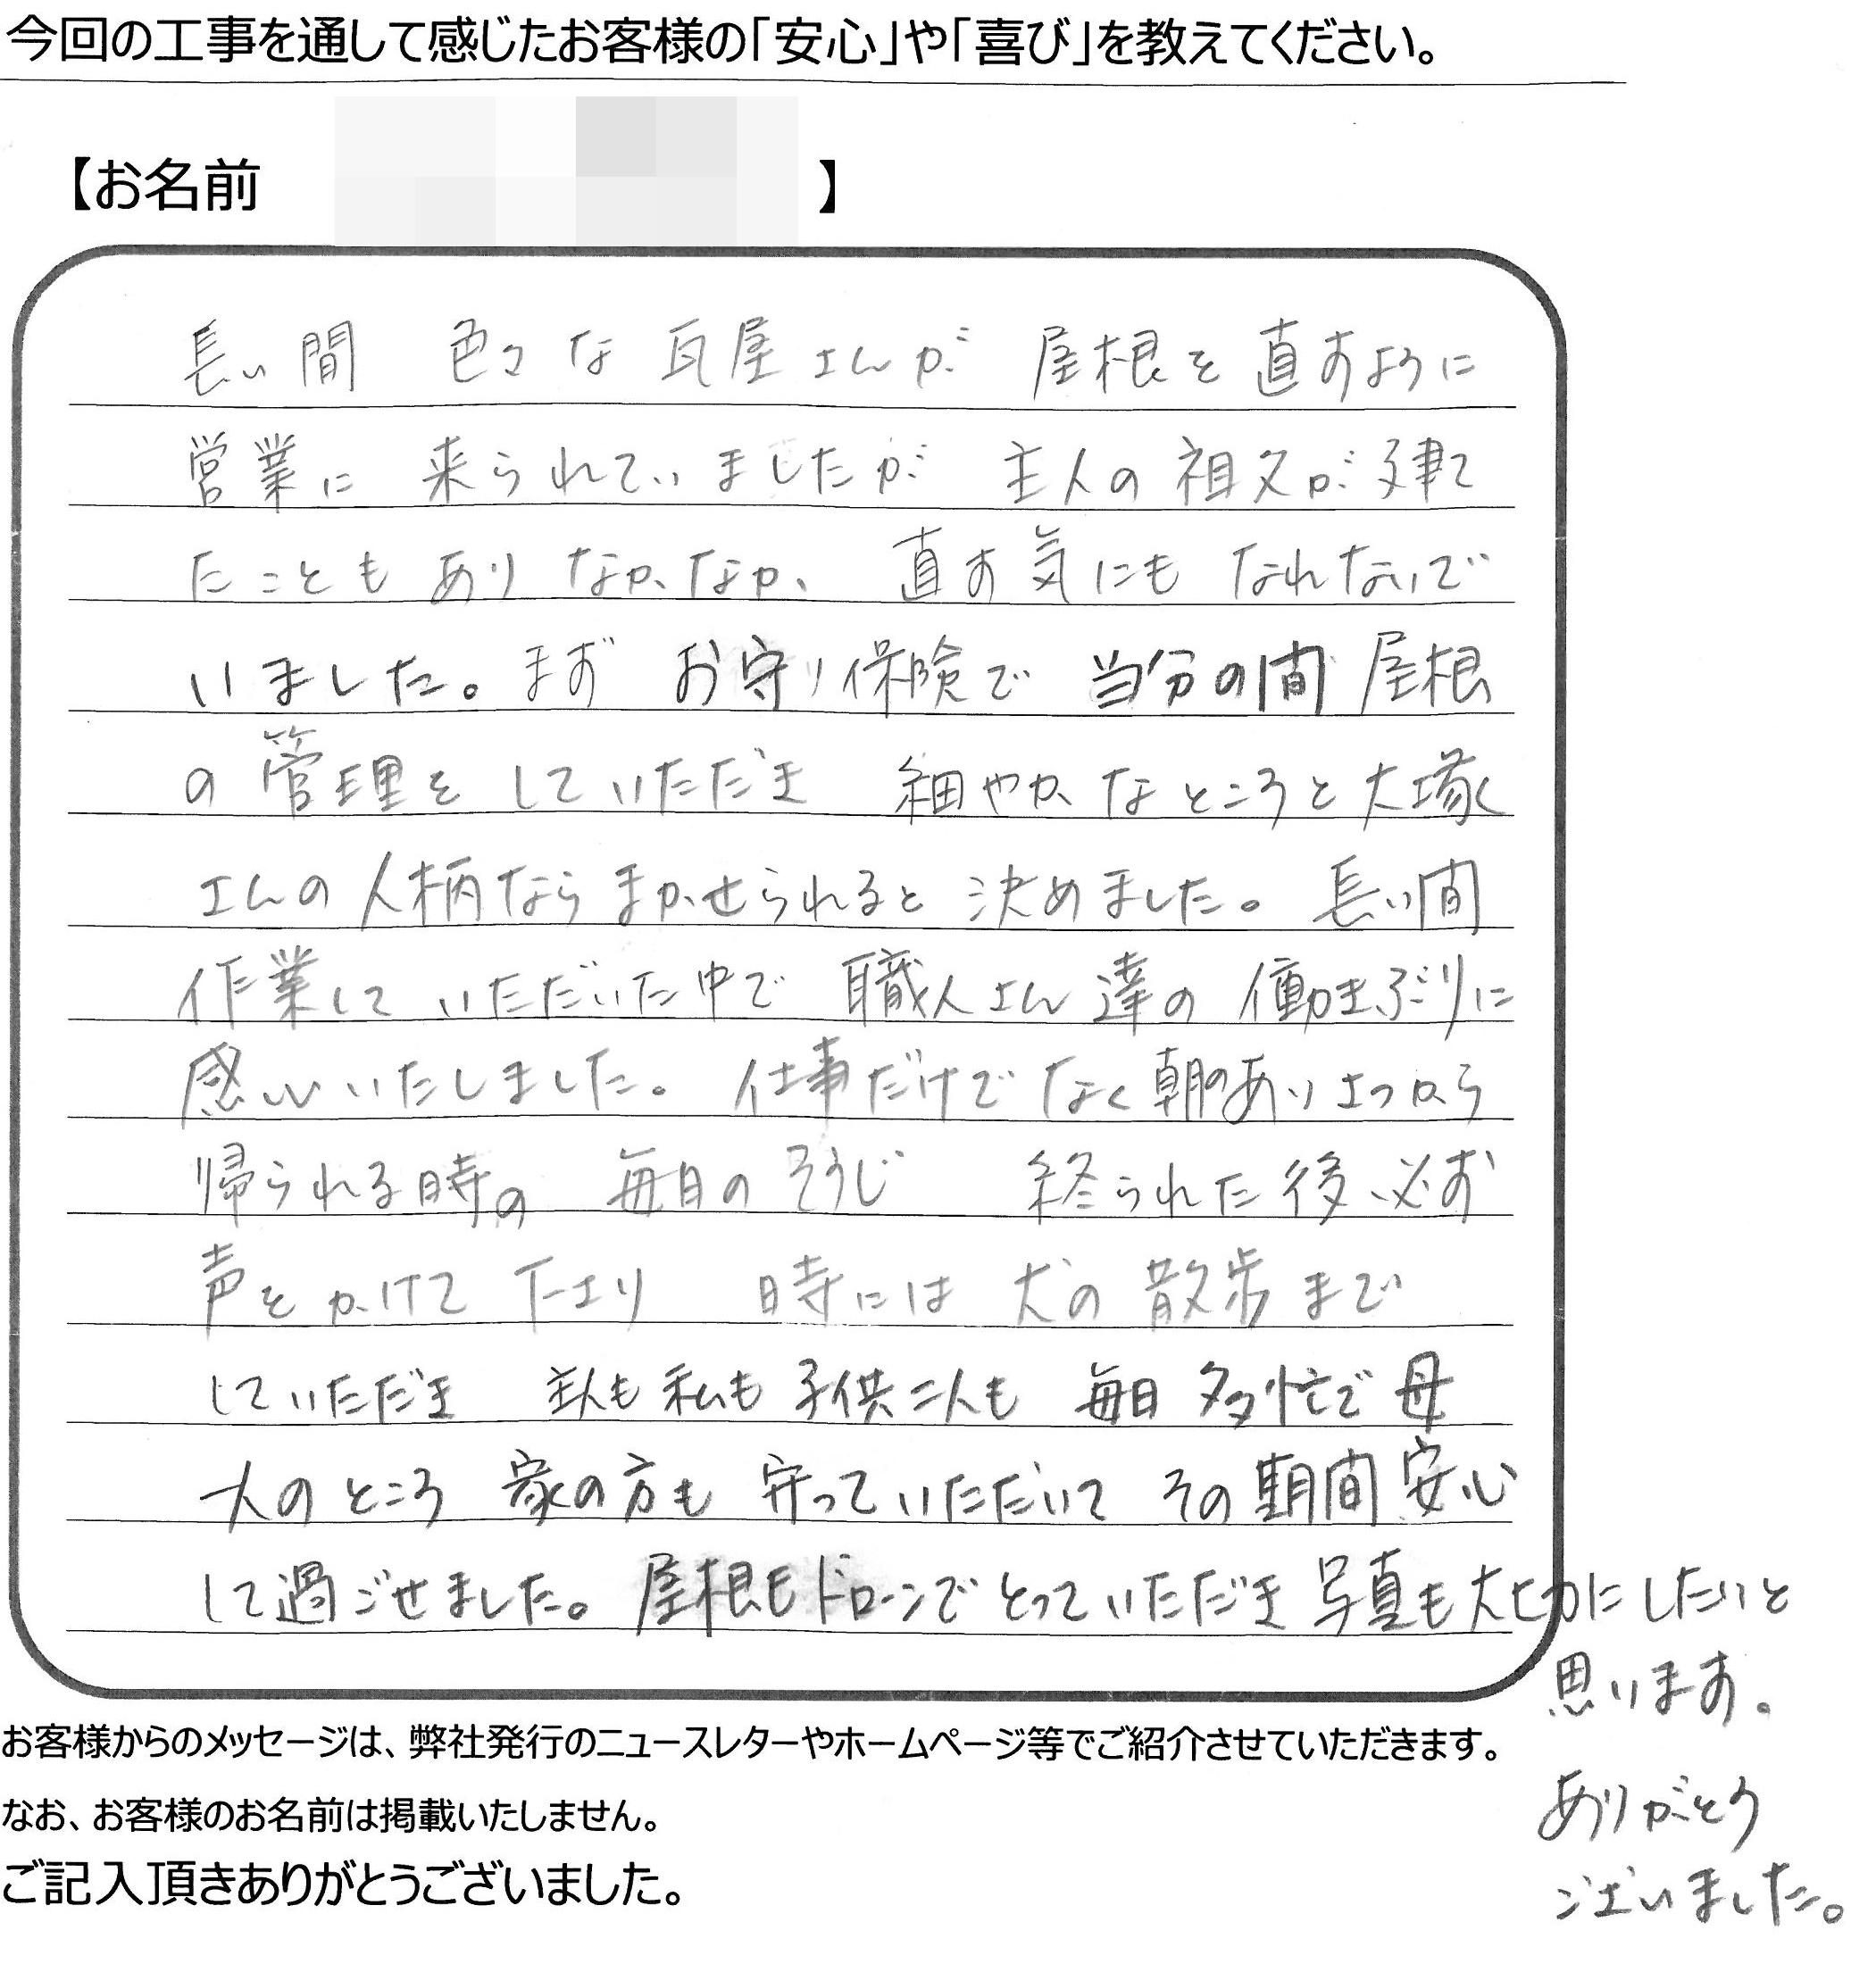 今回の工事を通して感じたお客様の「安心」や「喜び」を教えてください。
【お名前 】
長い間 色々な瓦屋さんが 屋根を直すように
営業に 来られていましたが 主人の祖父が建て
たこともあり なかなか、直す気にもなれないで
いました。まず お守り保険で 当分の間 屋根
の管理をしていただき 細やかなところと大塚
さんの人柄ならまかせられると決めました。長い間
作業していただいた中で 職人さん達の働きぶりに
感心いたしました。仕事だけでなく朝のあいさつから
帰られる時の 毎日のそうじ 終られた後必ず
声をかけて下さり 時には犬の散歩まで
していただき 主人も私も子供二人も 毎日多忙で母
一人のところ 家の方も 守っていただいて その期間安心
して過ごせました。屋根もドローンでとっていただき 写真も大切にしたいと
思います。
お客様からのメッセージは、弊社発行のニュースレターやホームページ等でご紹介させていただきます。
なお、お客様のお名前は掲載いたしません。
ありがとう
ご記入頂きありがとうございました。
ございました。